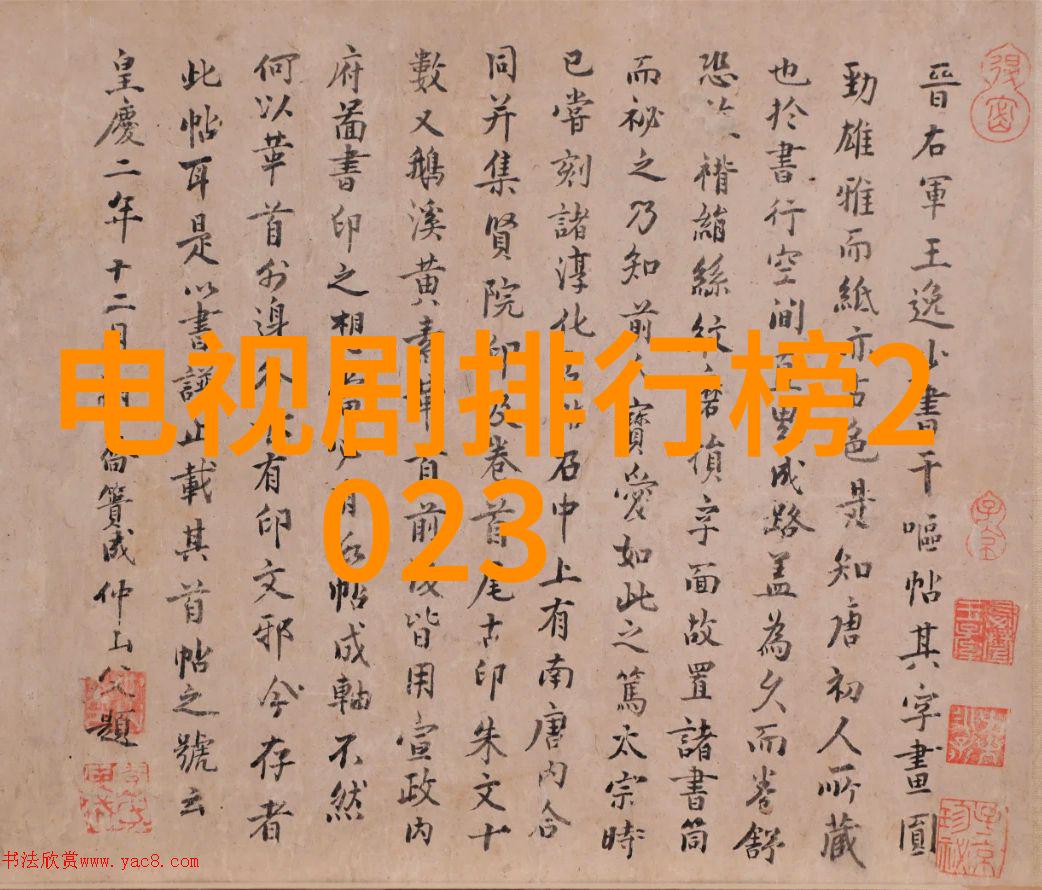 晉右軍王逸少書干嘔帖其字畫圓
勁雄雅而紙亦古色是知唐初人所藏
也於書行空間百成路蓋為久而卷舒
恐褙絹絲紋磨損字面故置諸書筒
而祕之乃知前人寶愛如此之篤太宗時
已嘗刻諸淳化石中上有南唐內合
同并集賢院印及卷首尾古印朱文十
數又鵝溪黃素首前後皆用宣政內
府啚書印之帖成軸不然
何以首外邊有印文邪今存者
此帖耳是以書譜止載其首帖之號云
皇慶二年十二月簣成仲山父題
电视剧排行榜2
023
书法欣赏www.yac8.com